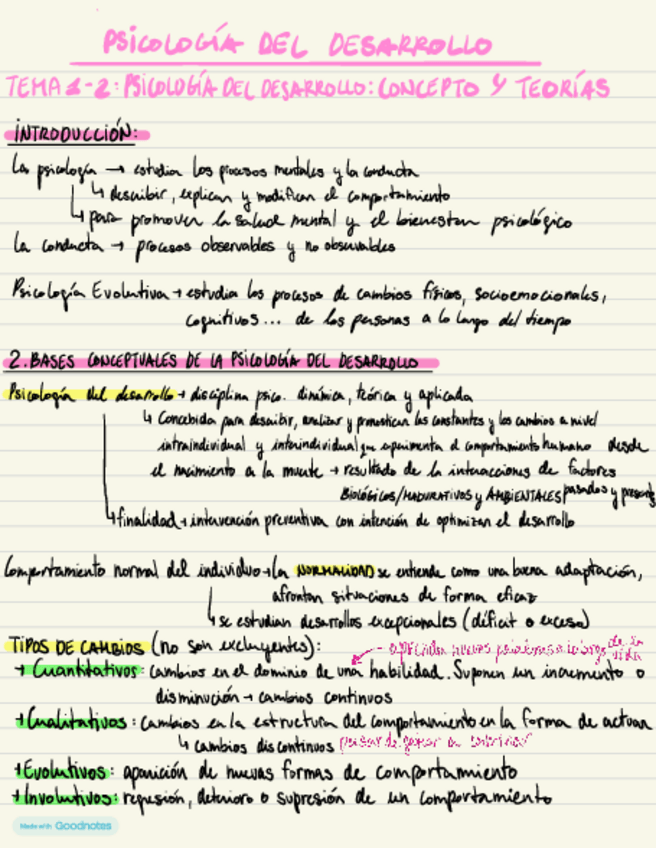 PSICOLOGÍA DEL DESARROLLO
TEMA 1-2: PSICOLOGÍA DEL DESARROLLO: CONCEPTO Y TEORÍAS
INTRODUCCIÓN:
La psicología → estudia los procesos mentales y la conducta
↳ describir, explicar y modificar el comportamiento
↳ para promover la salud mental y el bienestar psicológico
La conducta → procesos observables y no observables
Psicología Evolutiva → estudia los procesos de cambios físicos, socioemocionales,
cognitivos... de las personas a lo largo del tiempo
2. BASES CONCEPTUALES DE LA PSICOLOGÍA DEL DESARROLLO
Psicología del desarrollo → disciplina psico. dinámica, teórica y aplicada
↳ Concebida para describir, analizar y pronosticar las constantes y los cambios a nivel
intraindividual y interindividual que experimenta el comportamiento humano desde
el nacimiento a la muerte → resultado de la interacciones de factores
BIOLÓGICOS/MADURATIVOS Y AMBIENTALES pasados y presents
↳ finalidad → intervención preventiva con intención de optimizar el desarrollo
Comportamiento normal del individuo → La NORMALIDAD se entiende como una buena adaptación,
afrontar situaciones de forma eficaz
↳ se estudian desarrollos excepcionales (déficit o exceso)
TIPOS DE CAMBIOS (no son excluyentes): ← aprender nuevas palabras a lo largo de la vida
→ Cuantitativos: cambios en el dominio de una habilidad. Suponen un incremento o
disminución → cambios continuos
→ Cualitativos: cambios en la estructura del comportamiento en la forma de actuar
↳ cambios discontinuos pasar de gatear a
→ Evolutivos: aparición de nuevas formas de comportamiento
→ Involutivos: regresión, deterioro o supresión de un comportamiento
Made with Goodnotes